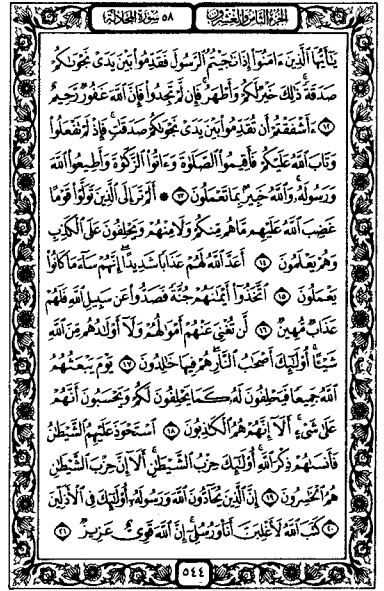 الجزء الثامن والعشرون ٥٨ سورة المجادلة
يَٰٓأَيُّهَا ٱلَّذِينَ ءَامَنُوٓا۟ إِذَا نَٰجَيْتُمُ ٱلرَّسُولَ فَقَدِّمُوا۟ بَيْنَ يَدَىْ نَجْوَىٰكُمْ
صَدَقَةً ۚ ذَٰلِكَ خَيْرٌ لَّكُمْ وَأَطْهَرُ ۚ فَإِن لَّمْ تَجِدُوا۟ فَإِنَّ ٱللَّهَ غَفُورٌ رَّحِيمٌ
١٢ ءَأَشْفَقْتُمْ أَن تُقَدِّمُوا۟ بَيْنَ يَدَىْ نَجْوَىٰكُمْ صَدَقَٰتٍ ۚ فَإِذْ لَمْ تَفْعَلُوا۟
وَتَابَ ٱللَّهُ عَلَيْكُمْ فَأَقِيمُوا۟ ٱلصَّلَوٰةَ وَءَاتُوا۟ ٱلزَّكَوٰةَ وَأَطِيعُوا۟ ٱللَّهَ
وَرَسُولَهُۥ ۚ وَٱللَّهُ خَبِيرٌۢ بِمَا تَعْمَلُونَ ١٣ * أَلَمْ تَرَ إِلَى ٱلَّذِينَ تَوَلَّوْا۟ قَوْمًا
غَضِبَ ٱللَّهُ عَلَيْهِم مَّا هُم مِّنكُمْ وَلَا مِنْهُمْ وَيَحْلِفُونَ عَلَى ٱلْكَذِبِ
وَهُمْ يَعْلَمُونَ ١٤ أَعَدَّ ٱللَّهُ لَهُمْ عَذَابًا شَدِيدًا ۖ إِنَّهُمْ سَآءَ مَا كَانُوا۟
يَعْمَلُونَ ١٥ ٱتَّخَذُوٓا۟ أَيْمَٰنَهُمْ جُنَّةً فَصَدُّوا۟ عَن سَبِيلِ ٱللَّهِ فَلَهُمْ
عَذَابٌ مُّهِينٌ ١٦ لَّن تُغْنِىَ عَنْهُمْ أَمْوَٰلُهُمْ وَلَآ أَوْلَٰدُهُم مِّنَ ٱللَّهِ
شَيْـًٔا ۚ أُو۟لَٰٓئِكَ أَصْحَٰبُ ٱلنَّارِ ۖ هُمْ فِيهَا خَٰلِدُونَ ١٧ يَوْمَ يَبْعَثُهُمُ
ٱللَّهُ جَمِيعًا فَيَحْلِفُونَ لَهُۥ كَمَا يَحْلِفُونَ لَكُمْ ۖ وَيَحْسَبُونَ أَنَّهُمْ
عَلَىٰ شَىْءٍ ۚ أَلَآ إِنَّهُمْ هُمُ ٱلْكَٰذِبُونَ ١٨ ٱسْتَحْوَذَ عَلَيْهِمُ ٱلشَّيْطَٰنُ
فَأَنسَىٰهُمْ ذِكْرَ ٱللَّهِ ۚ أُو۟لَٰٓئِكَ حِزْبُ ٱلشَّيْطَٰنِ ۚ أَلَآ إِنَّ حِزْبَ ٱلشَّيْطَٰنِ
هُمُ ٱلْخَٰسِرُونَ ١٩ إِنَّ ٱلَّذِينَ يُحَآدُّونَ ٱللَّهَ وَرَسُولَهُۥٓ أُو۟لَٰٓئِكَ فِى ٱلْأَذَلِّينَ
٢٠ كَتَبَ ٱللَّهُ لَأَغْلِبَنَّ أَنَا۠ وَرُسُلِىٓ ۚ إِنَّ ٱللَّهَ قَوِىٌّ عَزِيزٌ ٢١
٥٤٤